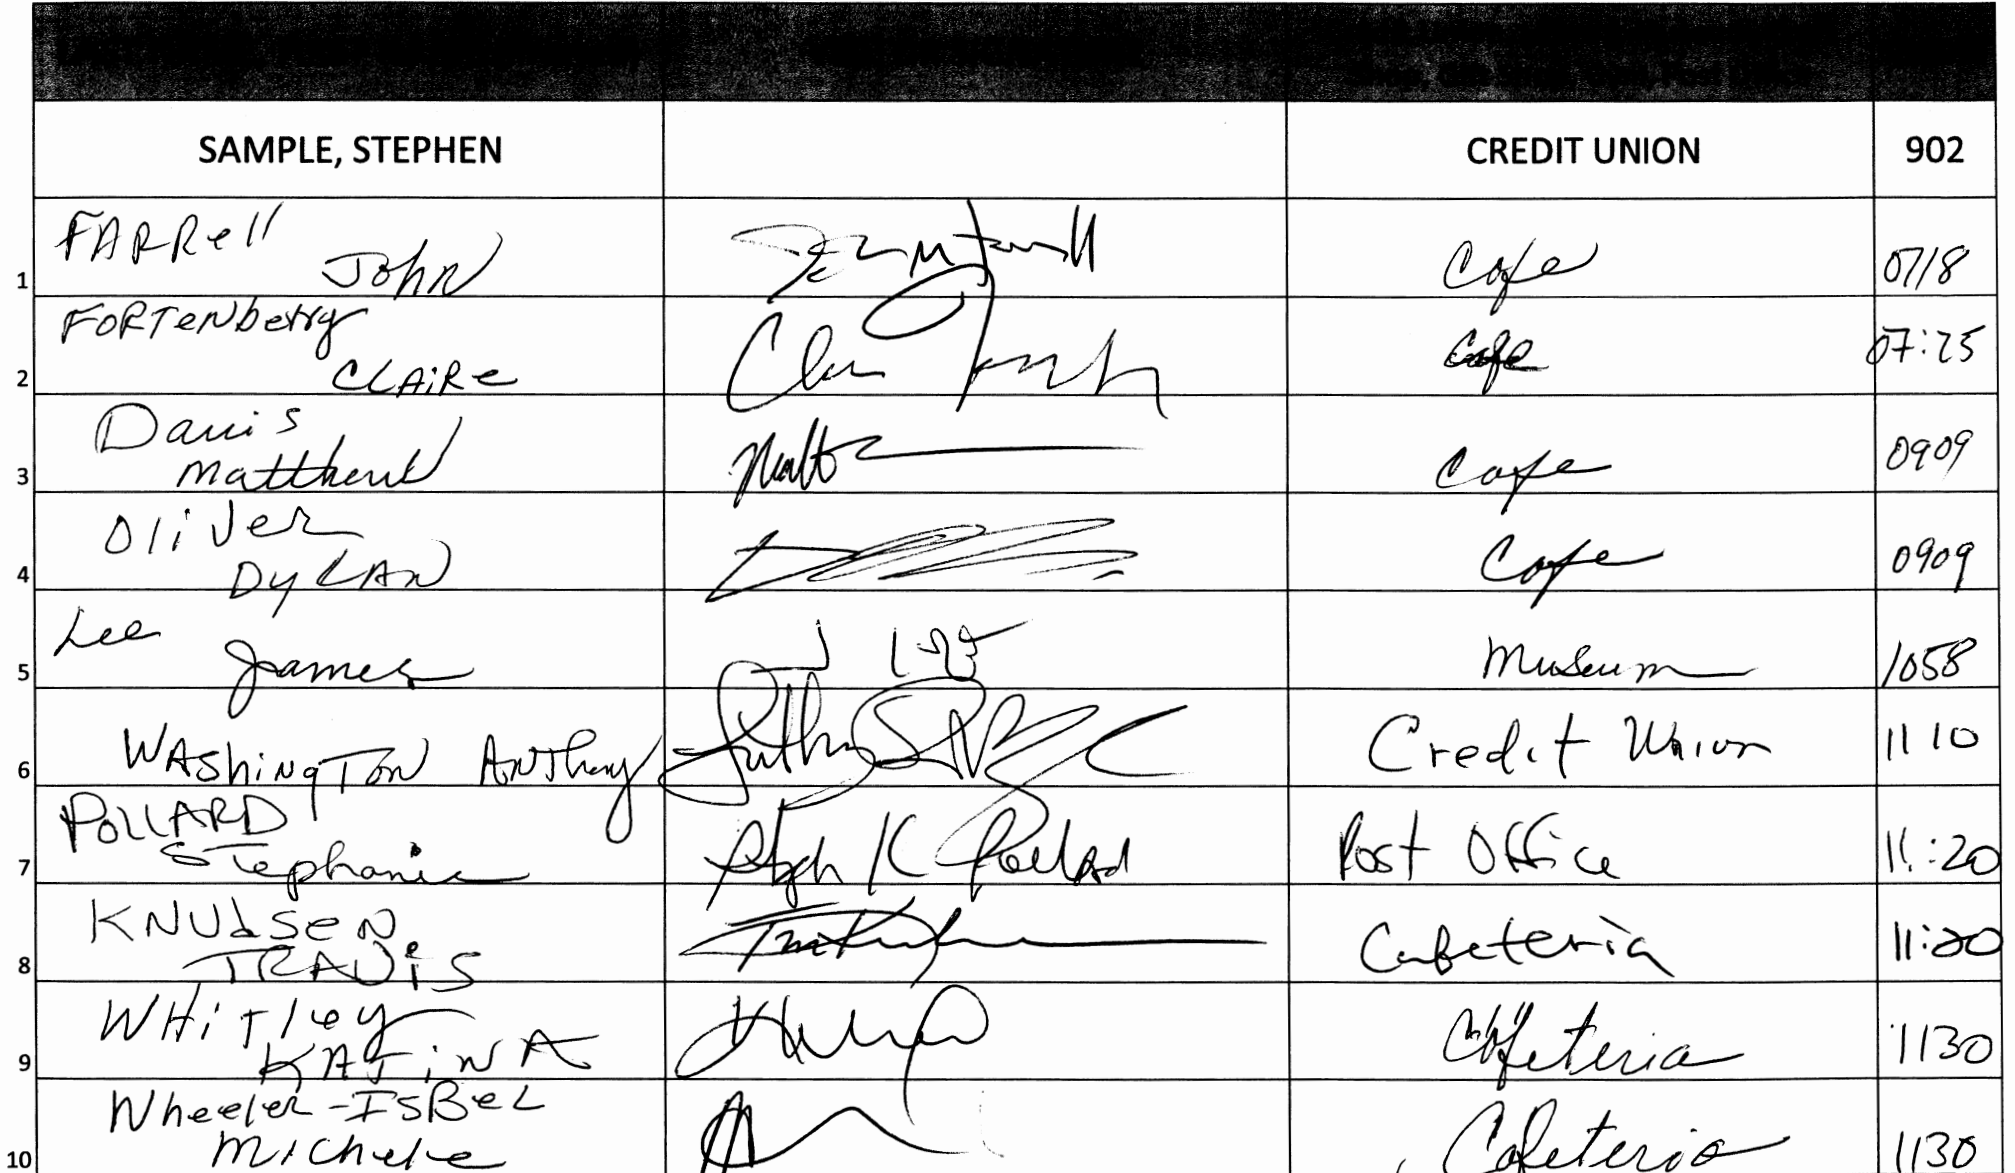 SAMPLE, STEPHEN CREDIT UNION 902
FARRell
John Cafe 0718
1
FORTENberry
CLAIRe Cafe 07:25
2
Davis
Matthew Cafe 0909
3
Oliver
DyLAN Cafe 0909
4
Lee J Lee
James Museum 1058
5
WAShingTon AnThony Credit Union 1110
6
POLLARD
Stephanie Steph K Pollard Post Office 11:20
7
KNUdSeN
TRAViS Cafeteria 11:20
8
WHiTley
KATiNA Cafeteria 1130
9
Wheeler-IsBeL
Michele Cafeteria 1130
10